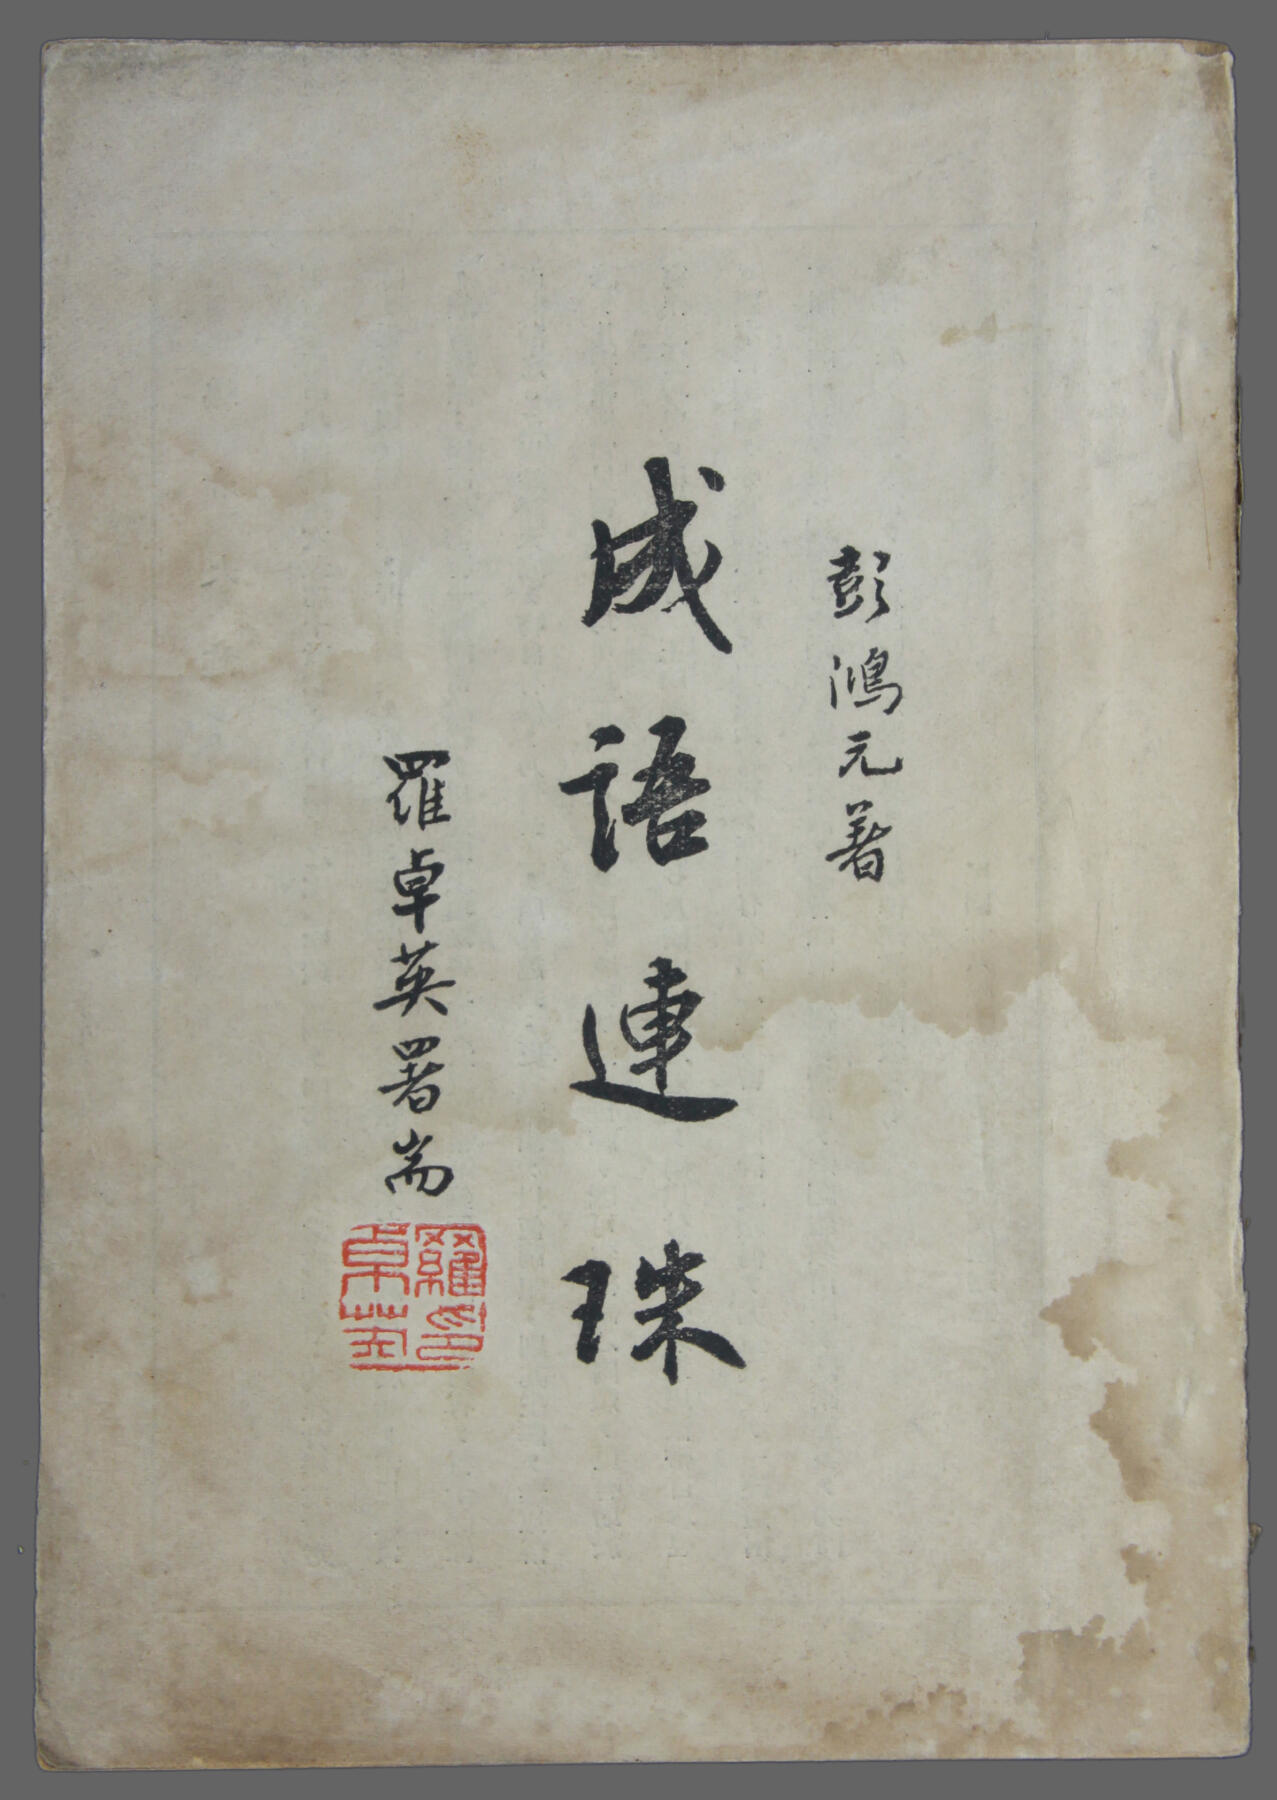 彭鴻元著
成語連珠
羅卓英署耑
羅卓英印